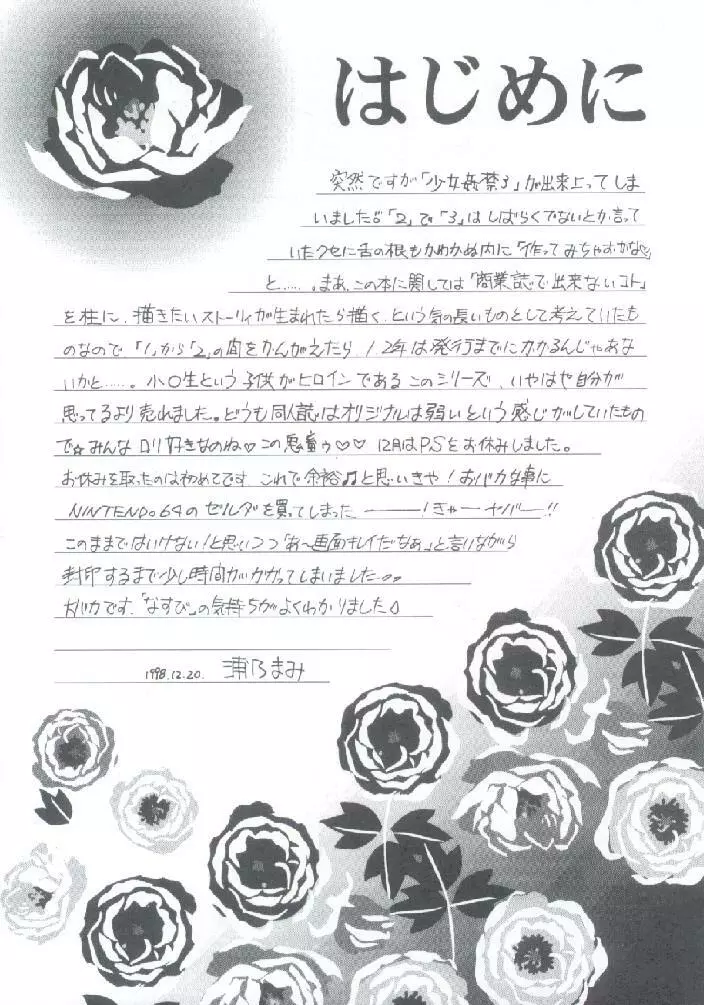 はじめに
突然ですが「少女姦禁3」が出来上ってしま
いました。「2」で「3」はしばらくでないとか言って
いたクセに舌の根もかわかぬ内に「作ってみちゃおかな♡
と……。まあ、この本に関しては「商業誌で出来ないコト」
を柱に、描きたいストーリィが生まれたら描く、という気の長いものとして考えていたも
のなので、「1」から「2」の間をかんがえたら、1、2年は発行までにかかるんじゃあな
いかと……。小〇生という子供がヒロインであるこのシリーズ、いやはや自分が
思ってるより売れました。どうも同人誌はオリジナルは弱いという感じがしていたもの
で☆みんなロリ好きなのね♡この悪童ゥ♡♡ 12月はPSをお休みしました。
お休みを取ったのは初めてです これで余裕♫と思いきや!おバカな事に
NINTENDO64のゼルダを買ってしまった―――!きゃーーヤバー!!
このままではいけない!と思いつつ「あ〜画面キレイだなあ」と言いながら
封印するまで少し時間がかかってしまいました。。
おバカです。「なすび」の気持ちがよくわかりました
1998.12.20. 浦乃まみ